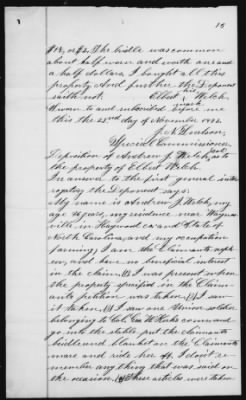 15
$18, or $2, The bridle was common
about half worn and worth one and
a half dollars, I bought all this
property. And further the Deponent
saith not. Elbert his Welch,
mark
Sworn to and subscribed before me
this the 22nd day of November 1872.
Special Commissioner
Deposition of Andrew J. Welch, as to
the property of Elbert Welch.
In answer to the first general inter-
rogatory the Deponent says:
My name is Andrew J. Welch, my
age 26 years, my residence near Waynes-
ville in Haywood co and State of
North Carolina, and my occupation
farming; I am the Claimants neph-
ew, and have no beneficial interest
in the claim. I was present when
the property specified in the Claim-
ants petition was taken, I saw
it taken, I saw one Union soldier
belonging to Col. Geo. W. Kirks command
go into the stable, put the claimants
bridle and blanket on the Claimants
mare and ride her off, I don't re-
member any thing that was said on
the occasion. These articles were taken